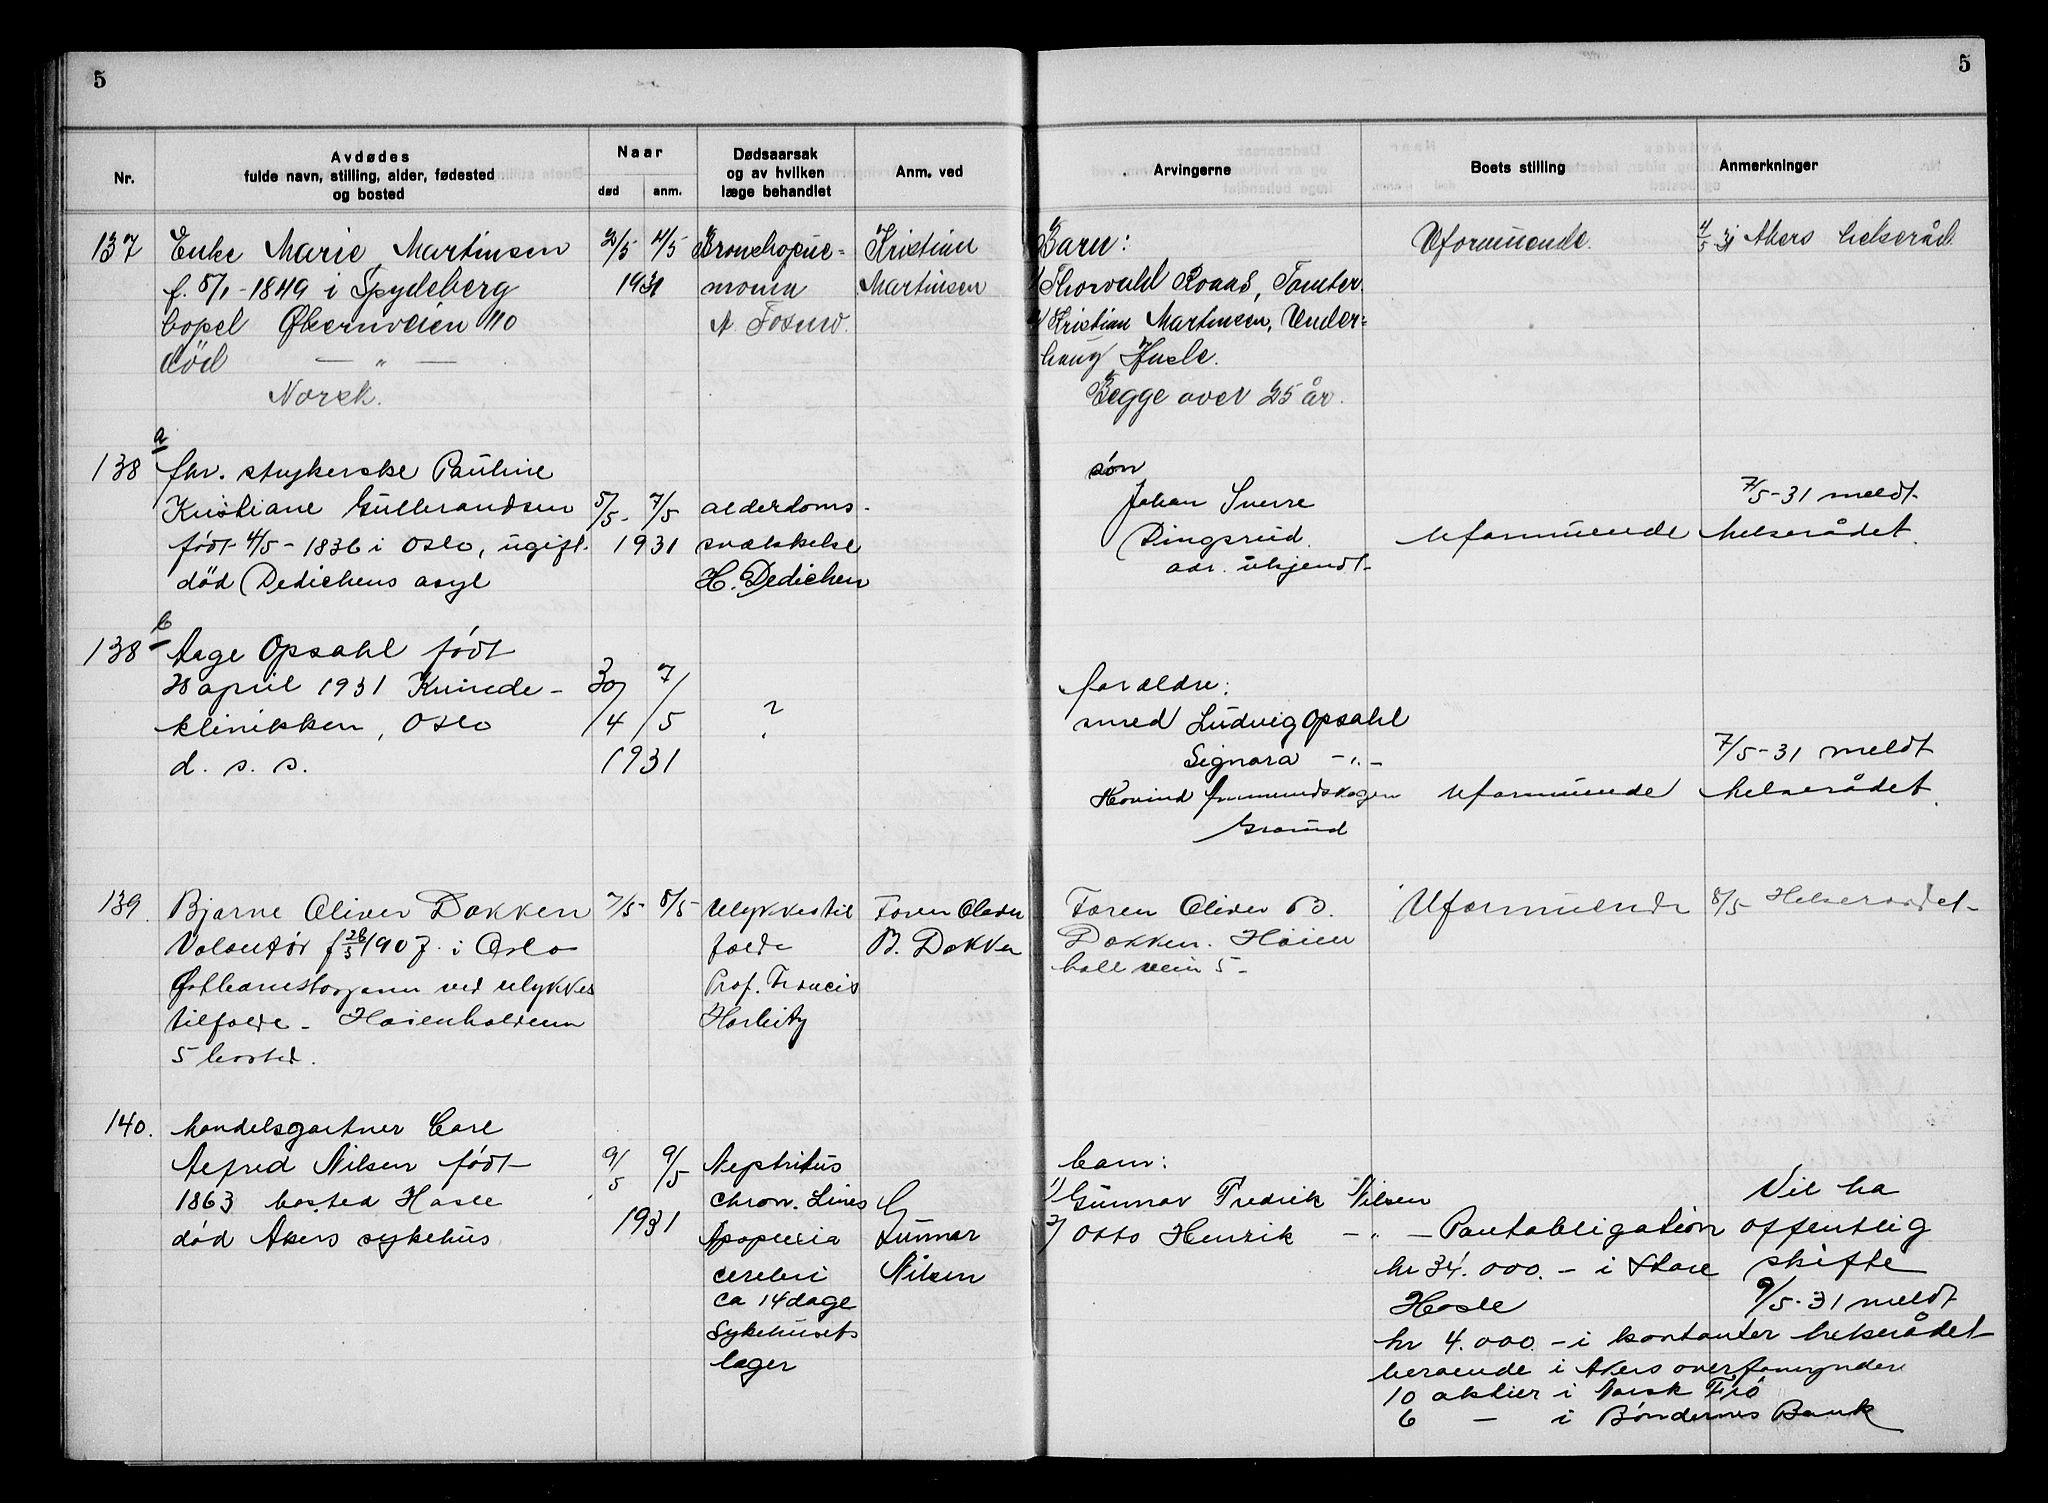 5
5
Nr.
Avdødes
fulde navn, stilling, alder, fødested
og bosted
Naar
død
anm.
Dødsaarsak
og av hvilken
læge behandlet
Anm. ved
Arvingerne
Boets stilling
Anmerkninger
137
Enke Marie Martinsen
f. 5/1-1849 i Spydeberg
bopel Økernveien 110
død — " —
Norsk.
2/5 4/5
1931
Bronchopne-
moni
Kristian
Martinsen
Barn:
1/ Thorvald Roaas, Tomter
2/ Kristian Martinsen, Under-
haug Hasle.
Begge over 25 år.
Uformuende.
4/5 31 Akers helseråd
138 a
fhv. strykerske Pauline
Kristiane Gulbrandsen
født 4/5-1836 i Oslo, ugift.
død Dedichens asyl
5/5- 7/5
1931
alderdoms-
svækkelse
H. Dedichen
søn
Johan Sverre
Dingsrud.
adr. ukjendt-
Uformuende
7/5-31 meldt
helserådet.
138 b
Aage Opsahl født
28 april 1931 Kvinde-
klinikken, Oslo
d. s. s.
30/4 7/5
1931
?
forældre:
smed Ludvig Opsahl
Signora -"-
Hovind
Grorud
Uformuende
7/5-31 meldt
helserådet.
139.
Bjarne Oliver Dokken
Volontør f 26/5 1907. i Oslo
ved ulykkes
tilfælde -
5 bosted.
7/5- 8/5-
Ulykkestil
fælde
Prof. Francis
Harbitz
Faren Oliver
B. Dokken
Faren Oliver B.
Dokken. Høien
hall vein 5-
Uformuende
8/5 Helseraadet-
140.
Handelsgartner Carl
Alfred Nilsen født
1863 bosted Hasle
død Akers sykehus
9/5 9/5
1931
Nephritus
chron.
Apoplexia
cerebri
ca 14 dage
Sykehusets
læger
Gunnar
Nilsen
barn:
1/ Gunnar Fredrik Nilsen
2/ Otto Henrik -"-
Pantobligation
kr 34.000.- i Store
Hasle
kr 4.000.- i kontanter
beroende i Akers overformynderi
10 aktier i Norsk Frø
6 — i Bøndernes Bank
Vil ha
offentlig
skifte
9/5-31 meldt
helserådet